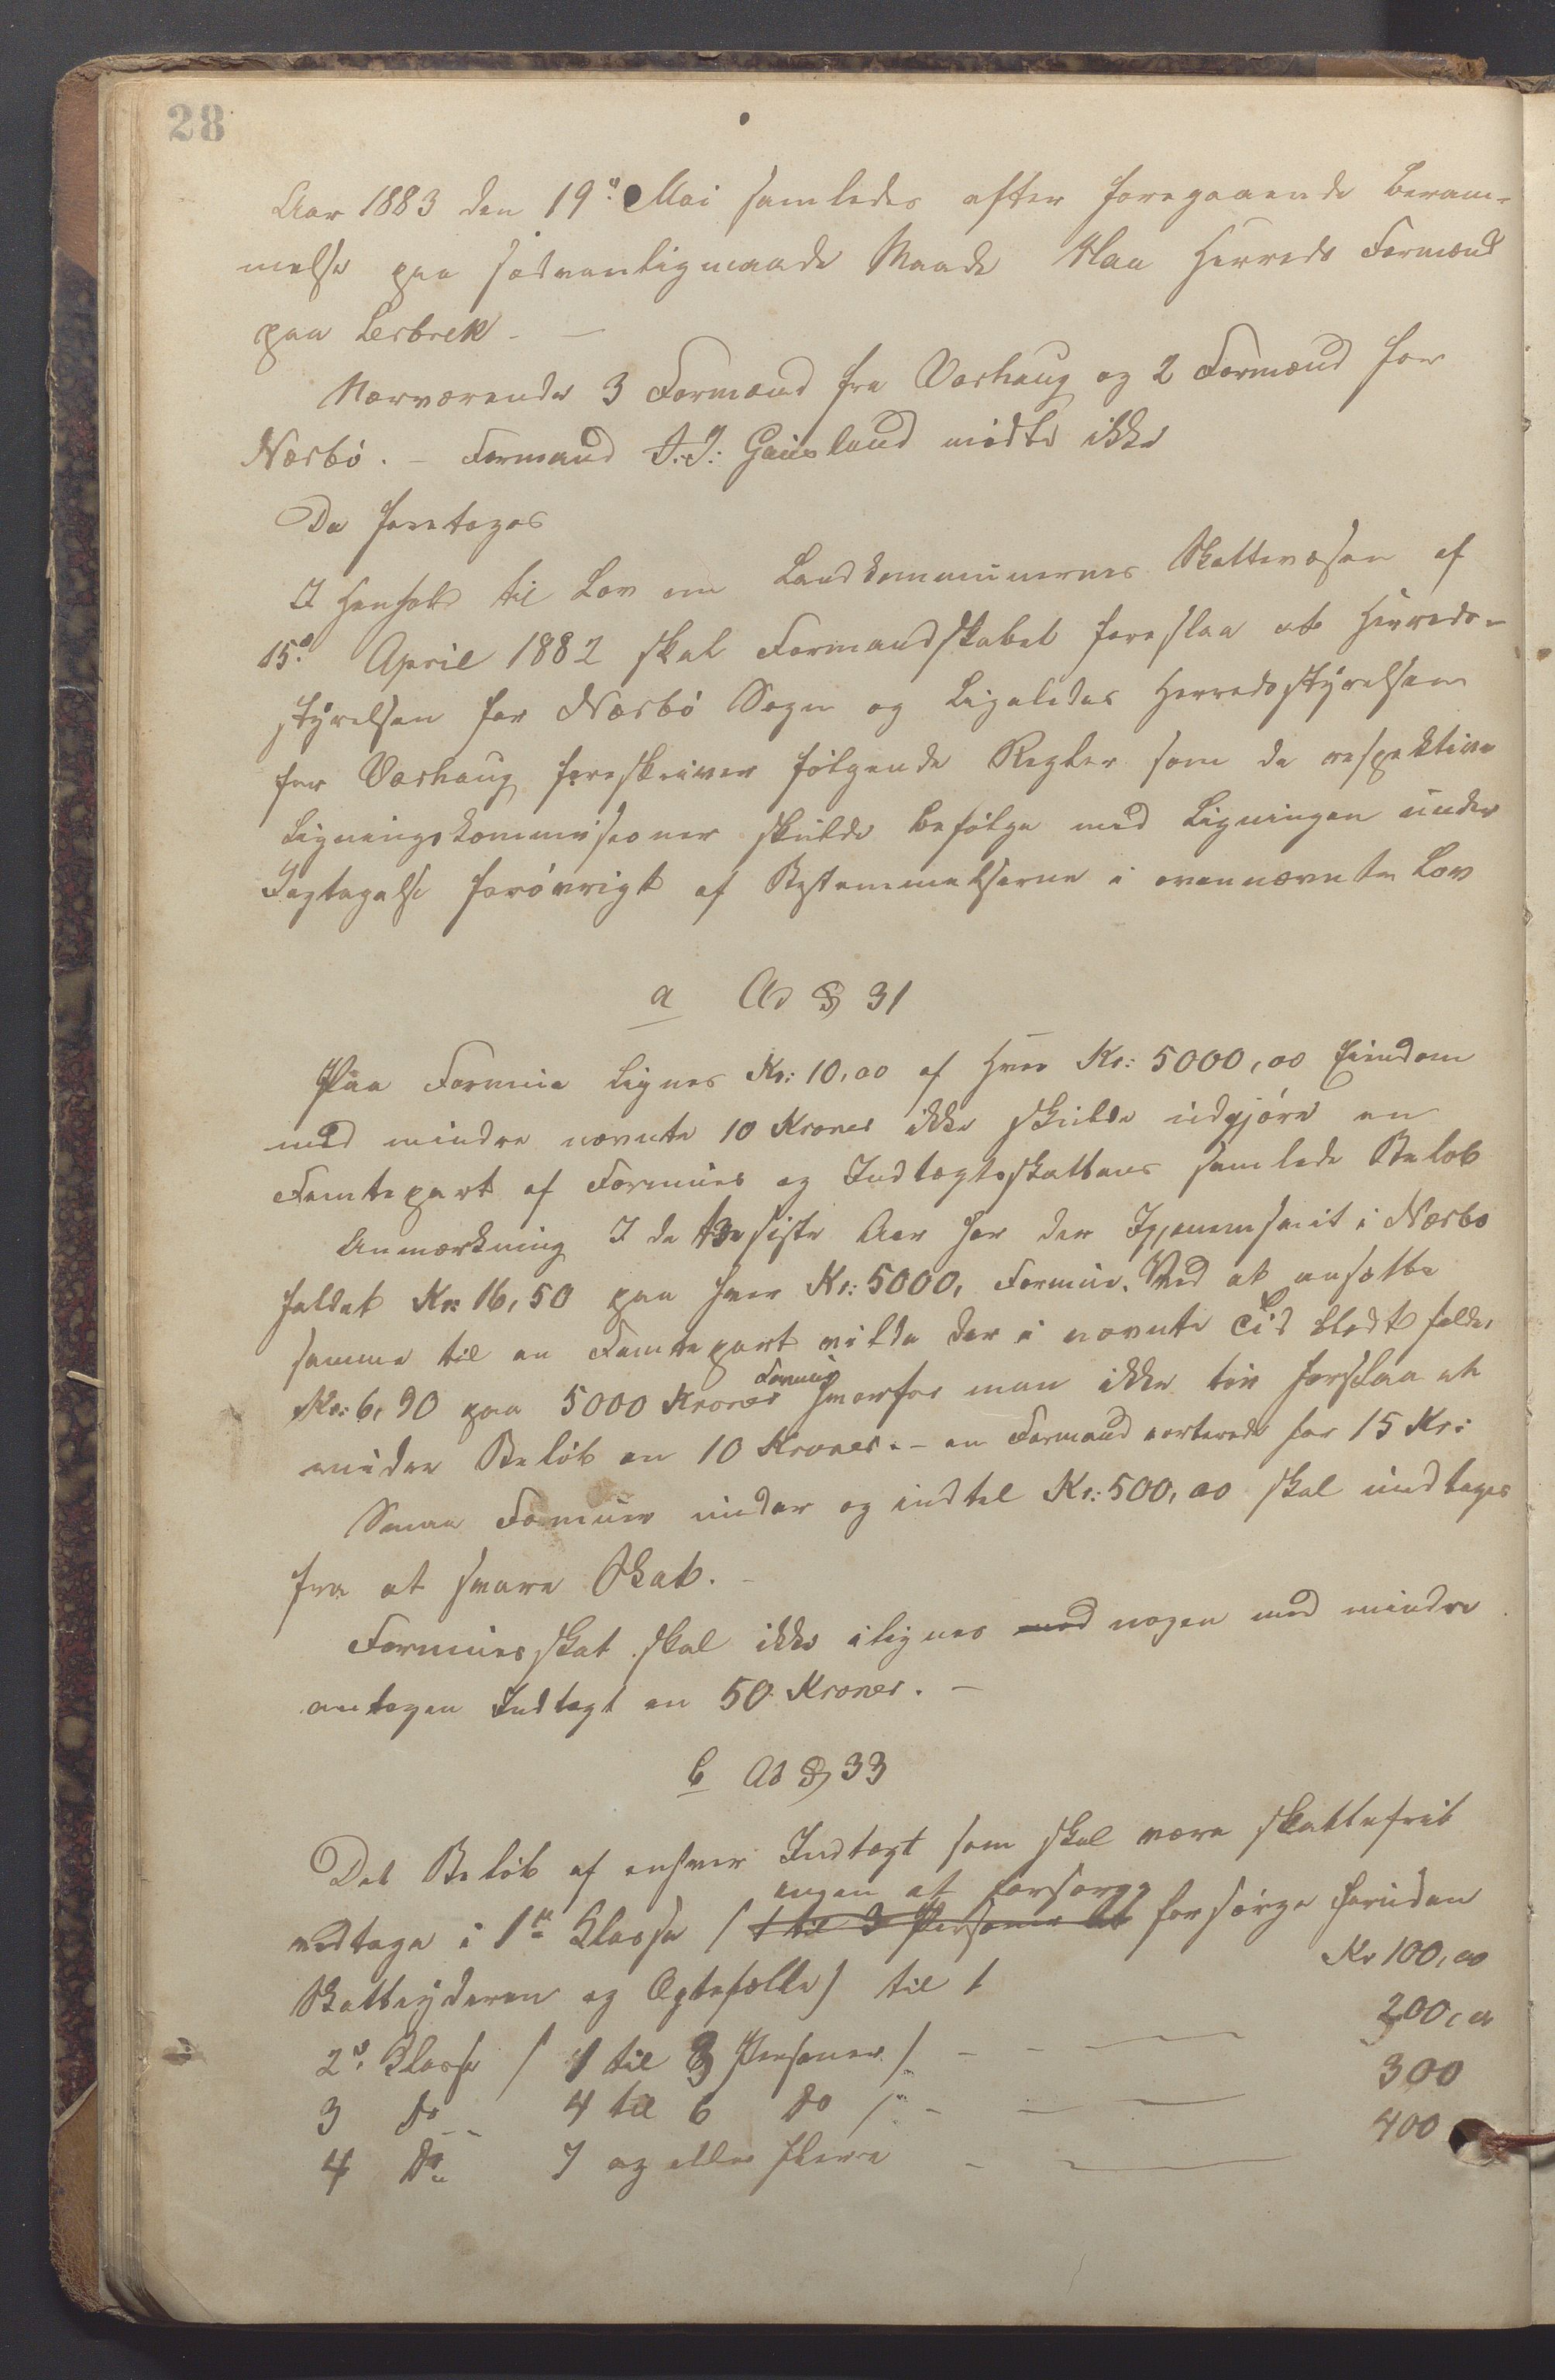 28
Aar 1883 den 19de Mai samledes efter foregaaende beram-
melse paa sædvanligmaade Maade Haa Herreds Formænd
paa Lerbrek. —
Nærværende 3 Formænd fra Varhaug og 2 Formænd for
Nærbö. – Formand J. J. Gausland mödte ikke
De foretoges
I Henhold til Lov om Landkommunernes Skattevæsen af
15de April 1882 skal Formandskabet foreslaa at Herreds-
styrelsen for Nærbö Sogn og Ligeledes Herredsstyrelsen
for Varhaug foreskriver fölgende Regler som de respektive
Ligningskommisioner skulde befölge med Ligningen under
Iagtagelse forövrigt af Bestemmelserne i ovennævnte Lov
a Ad § 31
Paa Formue Lignes Kr: 10,00 af Hver Kr: 5000,00 Eiendom
med mindre nævnte 10 Kroner ikke skulde udgjöre en
Femtepart af Formues og Indtægtsskattens samlede Belöb
Anmærkning I de tre siste Aar har der Igjennemsnit i Nærbö
faldet Kr: 16,50 paa hver Kr: 5000, Formue. Ved at ansætte
samme til en Femtepart vilde der i nævnte Tid blodt falde
Kr: 6,90 paa 5000 Kroner Formue hvorfor man ikke tör forslaa et
mider Belöb en 10 Kroner. – en Formand voterede for 15 Kr:
Smaa Formuer under og indtil Kr: 500,00 skal undtages
fra at svare Skat. –
Formuesskat skal ikke ilignes med nogen med mindre
antagen Indtægt en 50 Kroner. –
b Ad § 33
Det Belöb af enhver Indtægt som skal være skattefrit
ingen at forsorge
vedtages i 1ste Klasse / 1 til 3 Personer at forsörge foruden
Skatteyderen og Ægtefælle / til / Kr 100,00
2de Klasse / 1 til 3 Personer / – – — 200,00
3 do – – 4 til 6 do / – – — 300
4 do 7 og eller flere – — 400